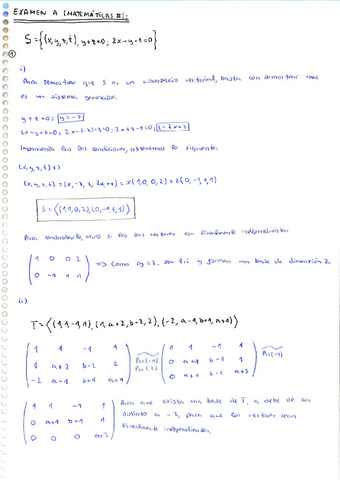 EXAMEN A (MATEMÁTICAS II):
S = {(x, y, z, t), y+z=0; 2x-y-t=0}
i)
Para demostrar que S es un subespacio vectorial, basta con demostrar que
es un sistema generador.
y+z=0; y=-z
2x-y-t=0; 2x-(-z)-t=0; 2x+z-t=0; t=2x+z
Imponiendo las dos condiciones, obtenemos lo siguiente:
(x, y, z, t) =
(x, y, z, t) = (x, -z, z, 2x+z) = x(1, 0, 0, 2) + z(0, -1, 1, 1)
S = ⟨(1, 0, 0, 2), (0, -1, 1, 1)⟩
Para comprobarlo, miro si los dos vectores son linealmente independientes
1 0 0 2
0 -1 1 1 => Como rg=2, son l.i y forman una base de dimensión 2.
ii)
T = ⟨(1, 1, -1, 1), (1, a+2, b-2, 2), (-2, a-1, b+1, a+1)⟩
1 1 -1 1
1 a+2 b-2 2
-2 a-1 b+1 a+1
1 1 -1 1
0 a+1 b-1 1
0 a+1 b-1 a+3
1 1 -1 1
0 a+1 b-1 1
0 0 0 a+2
Para que exista una base de T, a debe de ser
distinto a -2, para que los vectores sean
linealmente independientes